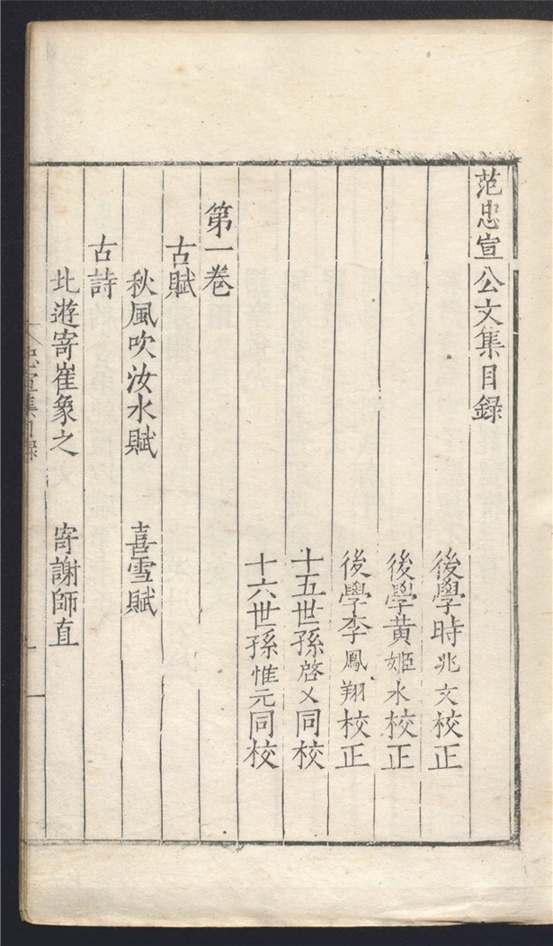 范忠宣公文集目録
後學時兆文校正
後學黃姬水校正
後學李鳳翔校正
十五世孫啓乂同校
十六世孫惟元同校
第一卷
古賦
秋風吹汝水賦 喜雪賦
古詩
北遊寄崔象之 寄謝師直
忠宣集目録